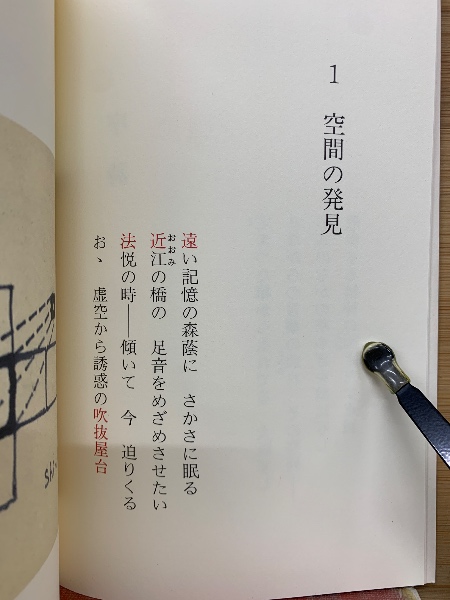 1 空間の発見
遠い記憶の森蔭に さかさに眠る
近江の橋の 足音をめざめさせたい
おおみ
法悦の時──傾いて 今 迫りくる
おゝ 虚空から誘惑の吹抜屋台